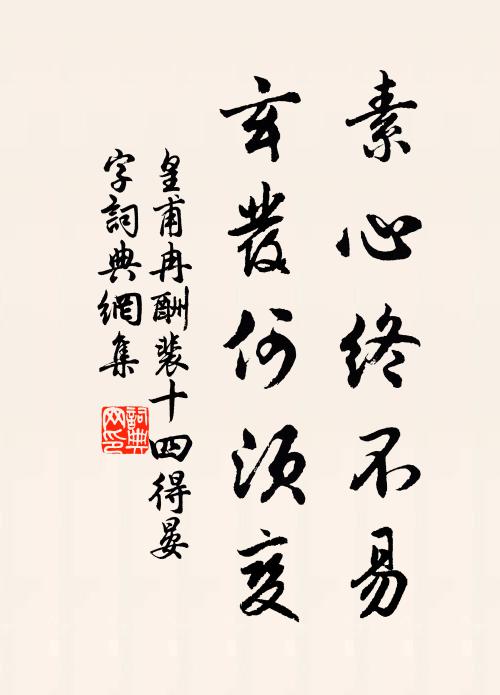 素心终不易
玄发何须变
皇甫冉酬裴十四得晏
字詞典網集
詞典网印